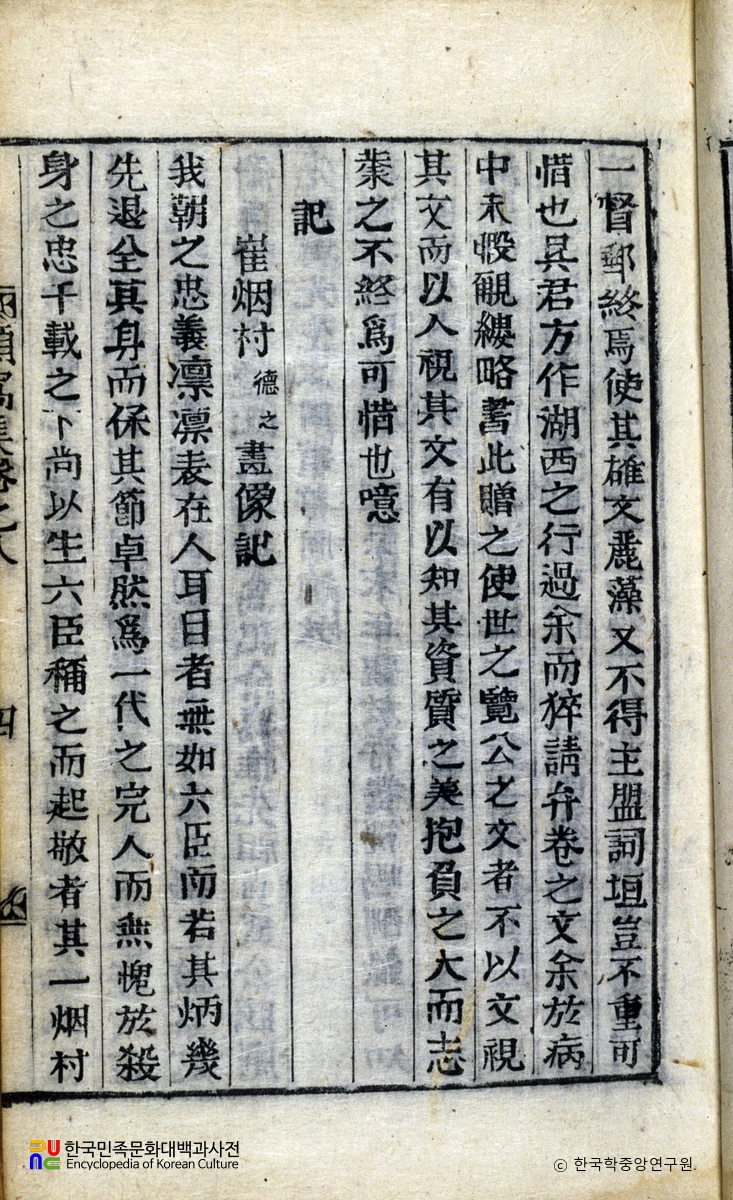 一督郵終焉使其雄文麗藻又不得主盟詞垣豈不重可
惜也具君方作湖西之行過余而猝請弁卷之文余於病
中未暇覼縷略書此贈之使世之覽公之文者不以文視
其文而以人視其文有以知其資質之美抱負之大而志
業之不終爲可惜也噫
記
崔烟村德之畫像記
我朝之忠義凛凛表在人耳目者無如六臣而若其炳幾
先退全其身而保其節卓然爲一代之完人而無愧於殺
身之忠千載之下尚以生六臣稱之而起敬者其一烟村
集卷之八
四
한국민족문화대백과사전
Encyclopedia of Korean Culture
© 한국학중앙연구원